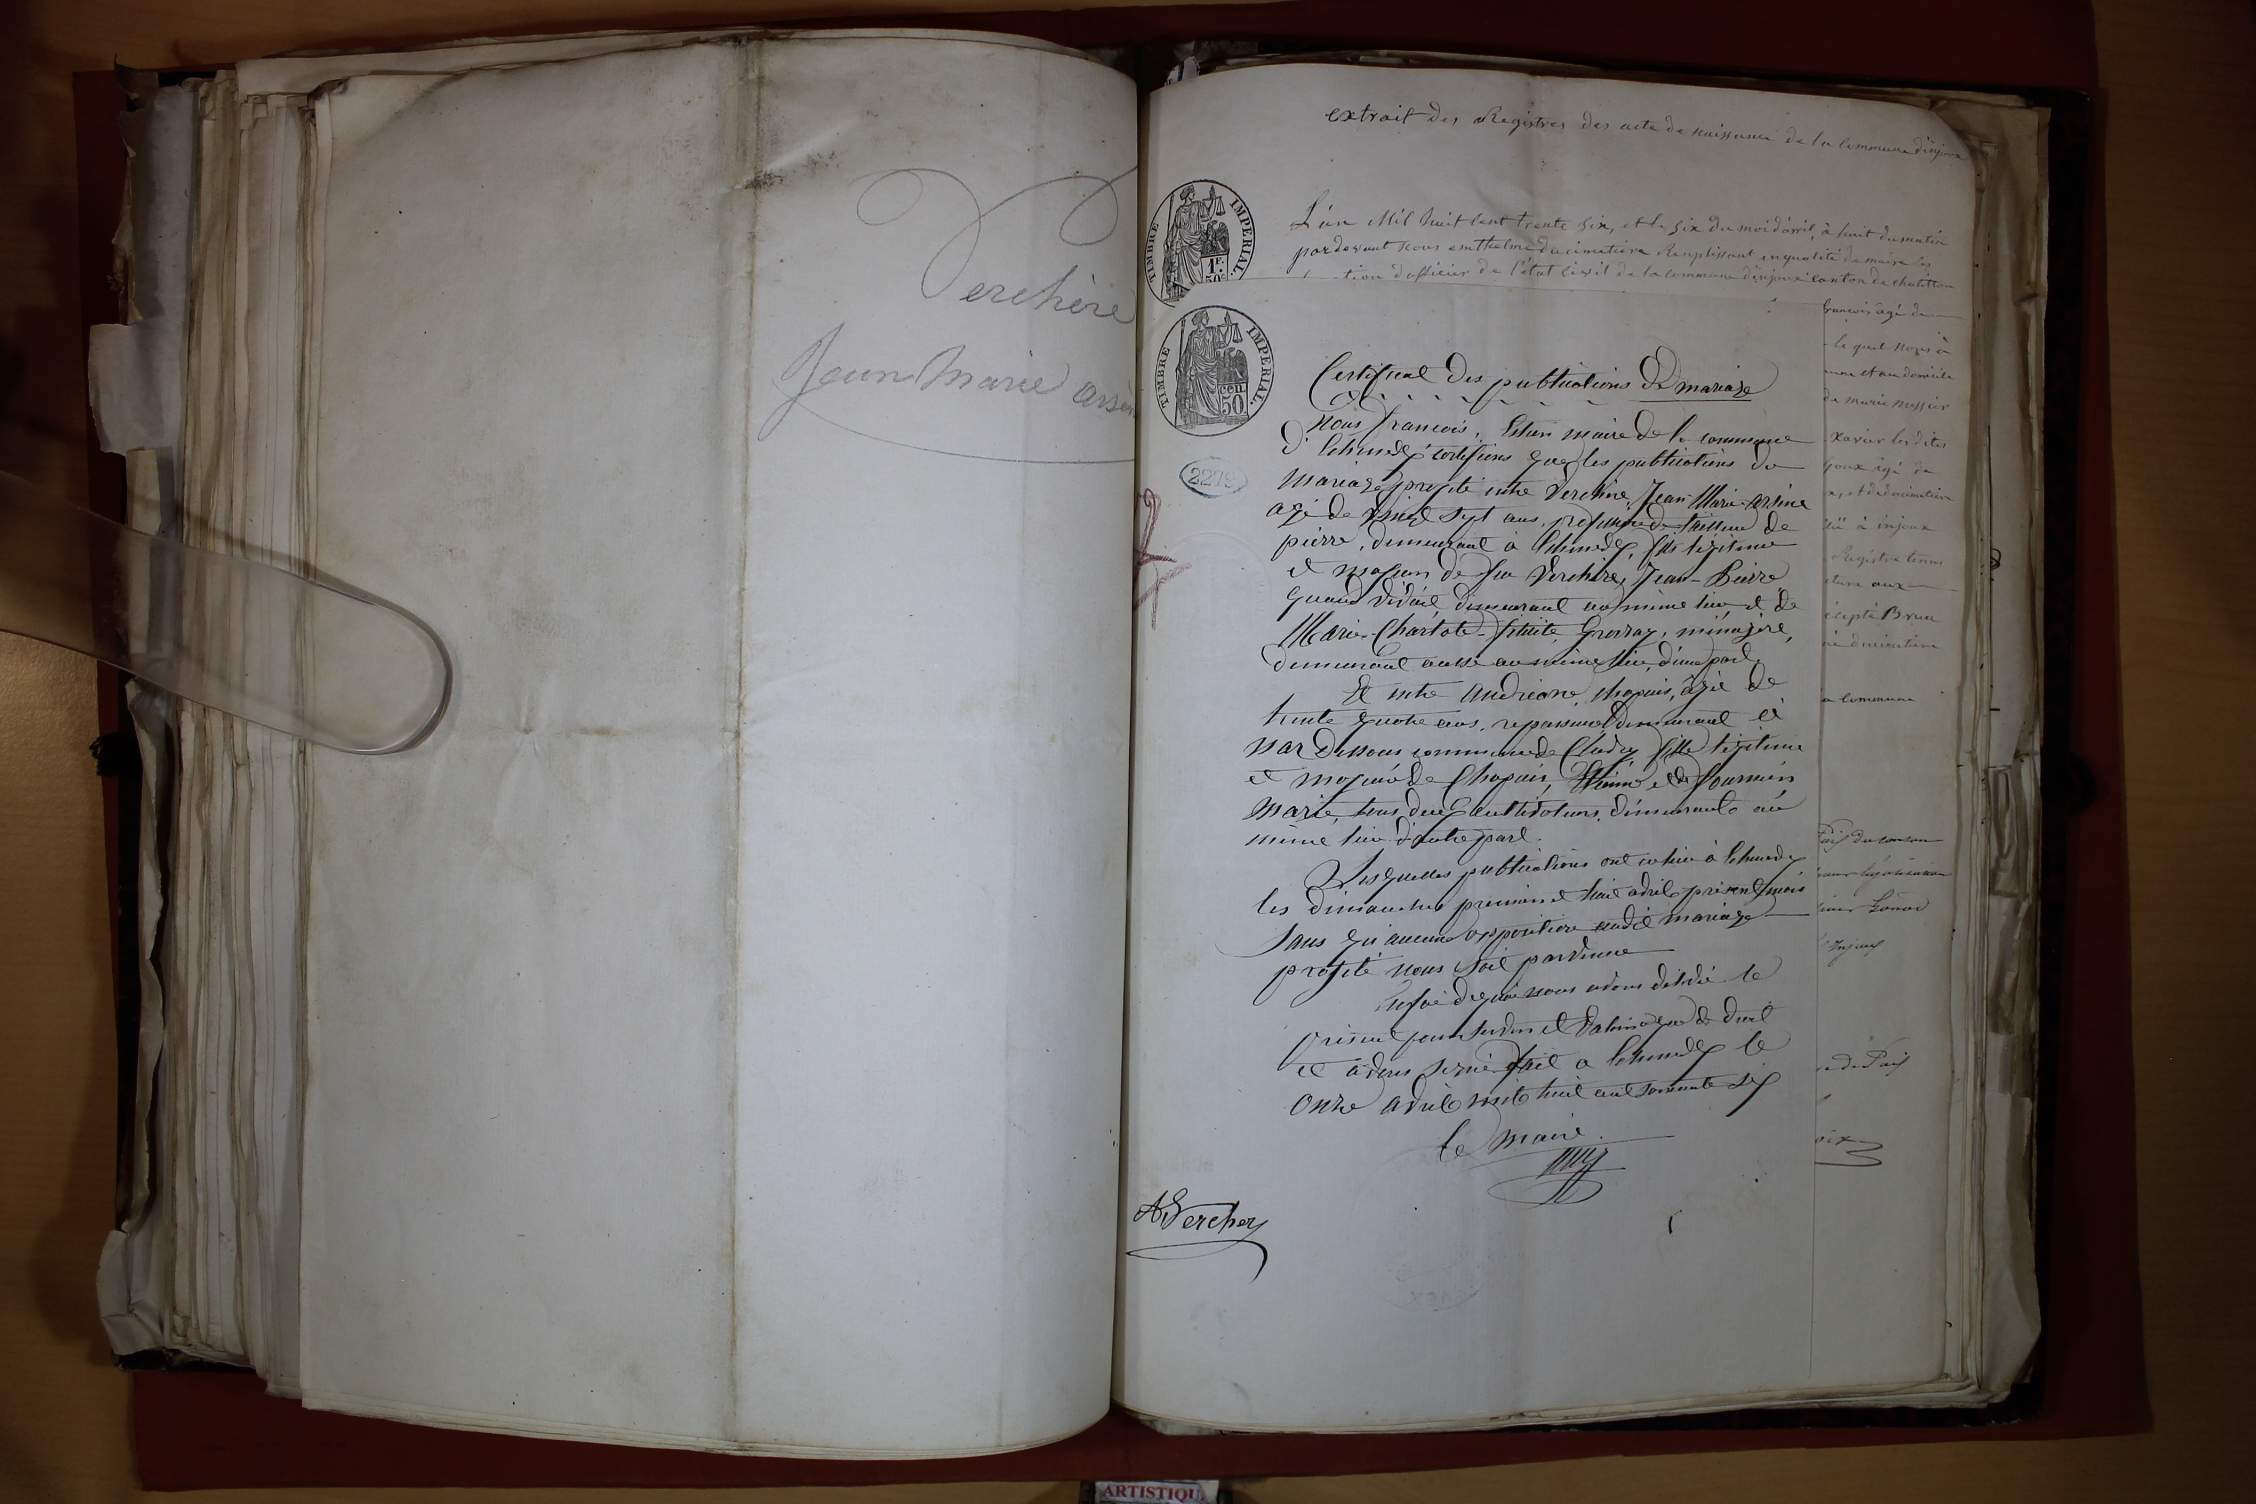 Verchère
Jean Marie Arsèn
extrait des Registres des acte de naissance de la Commune d'injoux
L'an Mil huit Cent trente Six, et le Six du moi d'avril, à huit du matin
pardevant nous Enthelme ducimetière Remplissant en qualité de maire les
tion d'officier de l'état Civil de la commune d'injoux Canton de chatillon
TIMBRE IMPERIAL
1F.
50c
TIMBRE IMPERIAL
50 cen.
2279
Certificat des publications de mariage
Nous François, maire de la commune
d'Echenevex certifions que les publications du
mariage projeté entre Verchère, Jean-Marie-Arsène
agé de vingt sept ans, profession de tailleur de
pierre, demeurant à Echenevex, fils légitime
et majeur de feu Verchère, Jean-Pierre
quand vivait, demeurant au même lieu, et de
Marie-Charlote-Félicité Grosray, ménagère,
demeurant aussi au même lieu, d'une part.
Et entre Andréane, Chapuis, âgée de
trente quatre ans, repasseuse demeurant à
Nar Dessous commune de fille légitime
et majeure de Chapuis, Etienne et de Fournier
Marie, tous deux cultivateurs, demeurants au
même lieu d'autre part.
Lesquelles publications ont eu lieu à Echenevex
les dimanches premier et huit avril présent mois
sans qu'aucune opposition audit mariage
projeté nous soit parvenue
En foi de quoi nous avons délivré le
présent pour servir et valoir ce que de droit
et avons signé fait a Echenevex le
onze avril mil huit cent soixante six
le maire
A Vercher
françois âgé de
le quel nous à
et au domicile
de marie
Xavier les dites
âgé de
et ducimetière
à injoux
Registre tenus
aux
excepté Brun
ducimetière
a Commune
Paix du canton
légalisation
Injoux
de Paix
ARTISTIQU